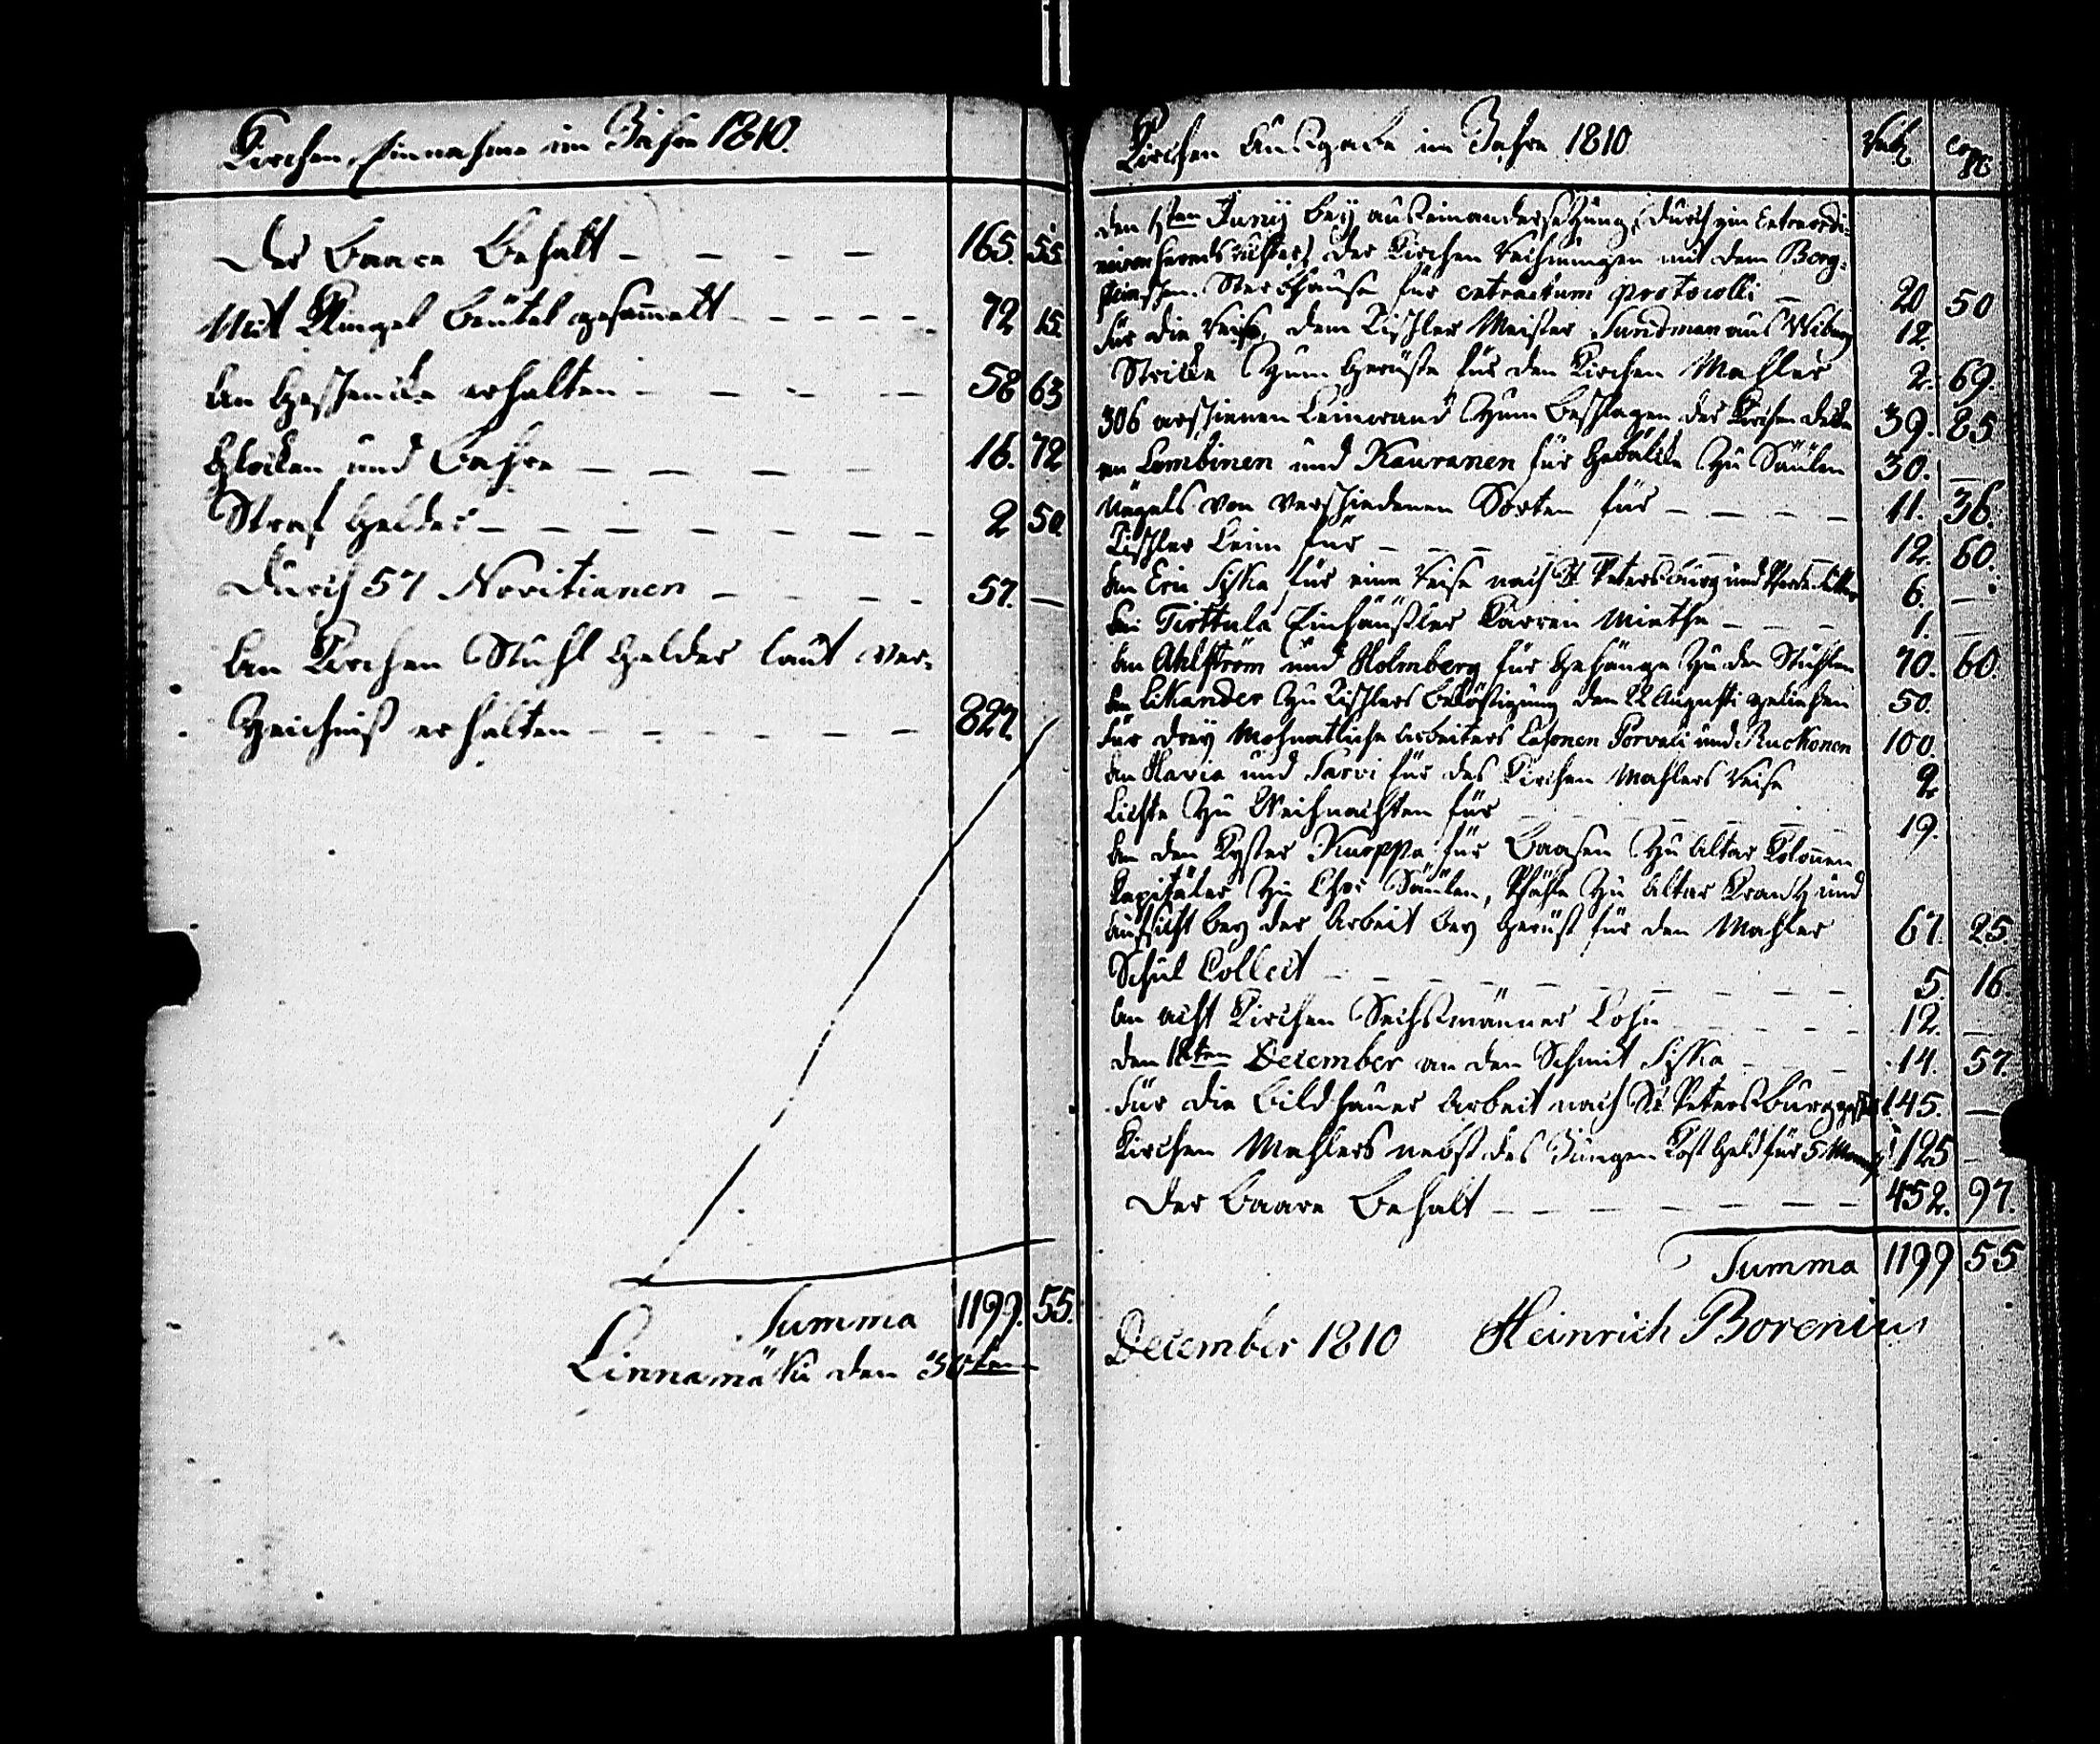 Kirchen Einnahme im Jahre 1810.
Der Baare Behalt – – – – 165. 55.
Mit Klingel Beutel gesammelt – – – – – 72 15.
An Geschencke erhalten – – – – 58 63
Glocken und Bahre – – – – 16. 72
Straf Gelder – – – – – – – 2 50
Durch 57 Novitianen – – – – 57. –
An Kirchen Stuhl Gelder laut Ver-
Zeichniß erhalten – – – – – – 827.
Summa 1199. 55.
Linnamäki den 30ten
Kirchen Ausgabe im Jahre 1810 Rub Cop
den Juny bey auseinandersetzung, durch ein Extraordi-
der Kirchen Rechnungen mit dem Borg-
Sterbhause für extractum protocolli – 20 50
Für die Reise dem Tischler Meister Sundman aus Wiburg 12.
Stricke Zum Gerüste für den Kirchen Mahler 2. 69.
306 arschienen Leinwand Zum Beschlagen der Kirchen decke 39. 85
an Lembinen und Kauranen für Gebälcke Zu Säulen 30. –
Nägels von verschiedenen Sorten für – – – – 11. 36.
Tischler Leim für – – – – – – 12. 60.
An Eric Siska für eine Reise nach St Petersburg und 6. –
Tirttula Einhäußler Karren Miethe – – – 1. –
An Ahlström und Holmberg für Gehänge Zu den Stühlen 70. 60.
An Likander Zu Tischlers Beköstigung den 22 Augusti geliehen 50.
Für drey Mohnatliche Arbeiters Lasonen Torvali und Ruckonen 100.
An Havia und Sarvi für des Kirchen Mahlers Reise 9.
Lichte Zu Weihnachten für – – – – – – 19.
An den Kyster Kurppa für Baasen Zu Altar Kolonnen
Kapitäler Zu Chor Säulen, Pfähle Zu Altar Krantz und
Aufsicht bey der Arbeit bey Gerüst für den Mahler 67. 25
Schul Collect – – – – – – – – – 5. 16
An acht Kirchen Sechsmänner Lohn – – – – – 12. –
den 18ten December an den Schmit Siska – – – 14. 57.
Für die Bildhauer Arbeit nach St. Petersburg 145. –
Kirchen Mahlers nebst des Jungen Kost Geld für 5 125 –
Der Baare Behalt – – – – – – – 452. 97.
Summa 1199 55
December 1810 Heinrich Borenius